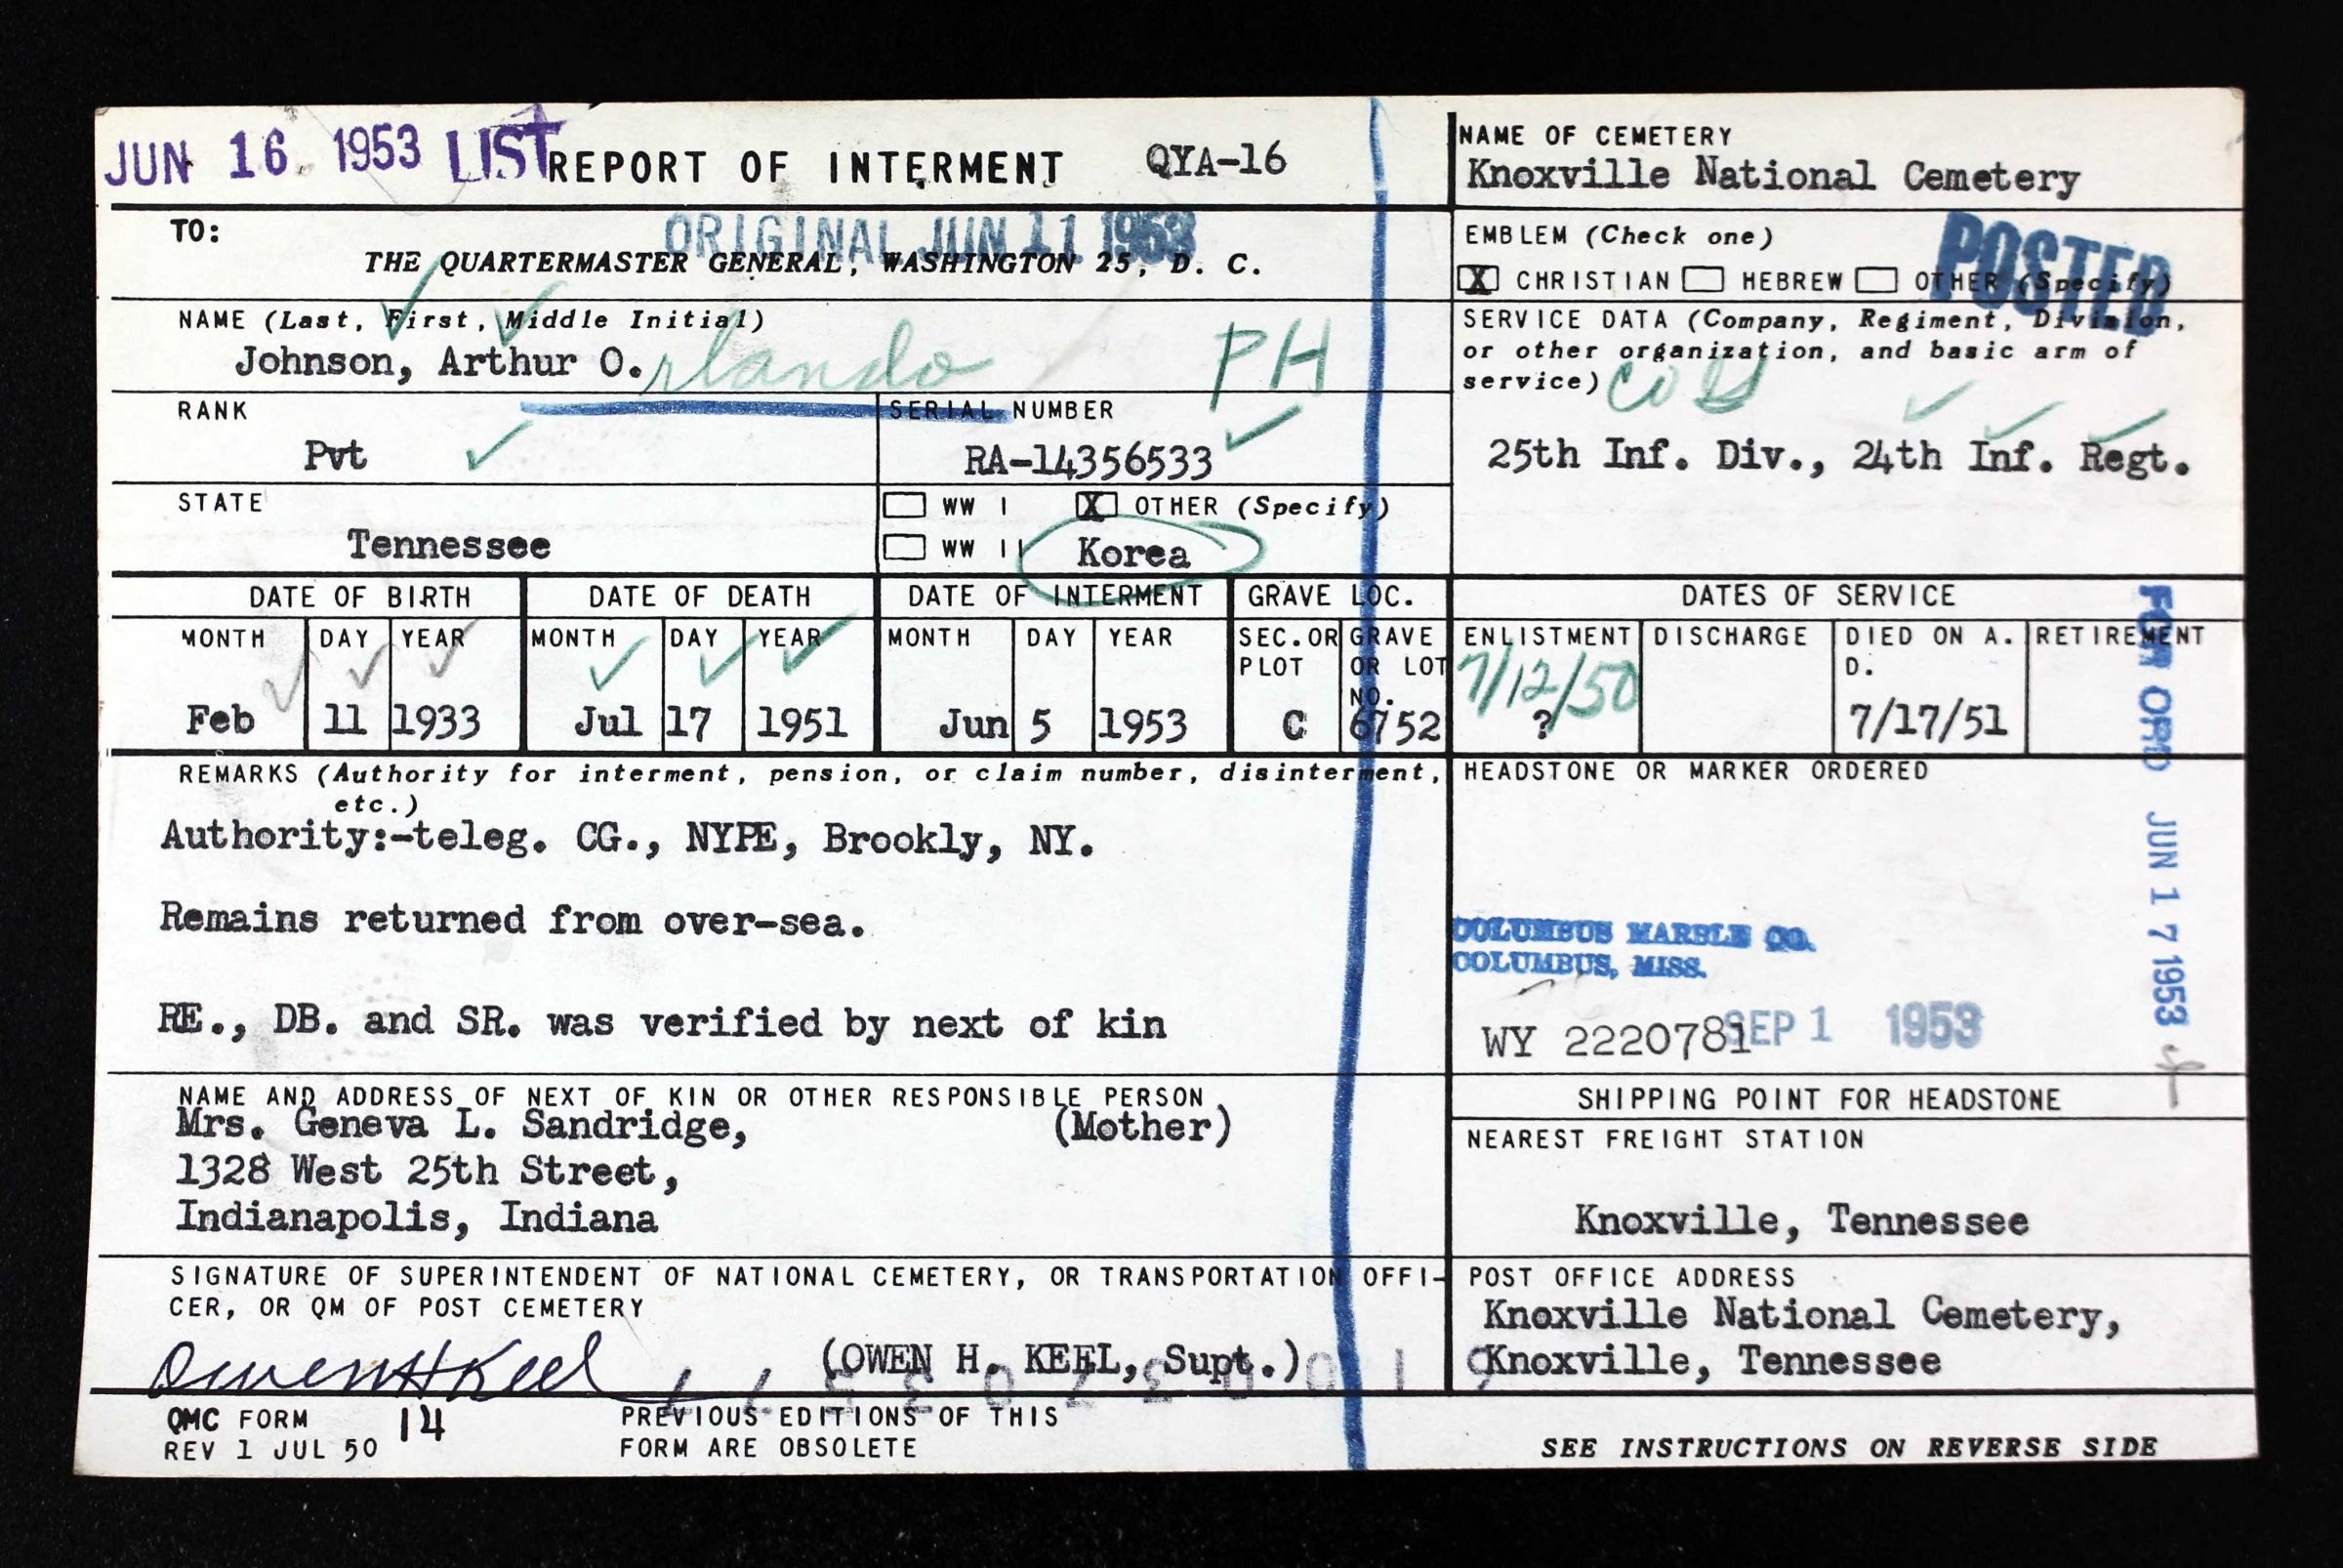 JUN 16 1953 LIST REPORT OF INTERMENT QYA-16
NAME OF CEMETERY
Knoxville National Cemetery
TO:
ORIGINAL JUN 11 1953
THE QUARTERMASTER GENERAL, WASHINGTON 25, D. C.
EMBLEM (Check one)
X CHRISTIAN HEBREW OTHER (Specify)
POSTED
NAME (Last, First, Middle Initial)
Johnson, Arthur O.rlando PH
SERVICE DATA (Company, Regiment, Division,
or other organization, and basic arm of
service) Co
25th Inf. Div., 24th Inf. Regt.
RANK
Pvt
SERIAL NUMBER
RA-14356533
STATE
Tennessee
WW I X OTHER (Specify)
WW II Korea
DATE OF BIRTH DATE OF DEATH DATE OF INTERMENT GRAVE LOC. DATES OF SERVICE
MONTH DAY YEAR MONTH DAY YEAR MONTH DAY YEAR SEC.OR PLOT GRAVE OR LOT NO. ENLISTMENT DISCHARGE DIED ON A. D. RETIREMENT
7/12/50
Feb 11 1933 Jul 17 1951 Jun 5 1953 C 6752 ? 7/17/51
FOR ORD JUN 17 1953
REMARKS (Authority for interment, pension, or claim number, disinterment,
etc.)
Authority:-teleg. CG., NYPE, Brookly, NY.
Remains returned from over-sea.
RE., DB. and SR. was verified by next of kin
HEADSTONE OR MARKER ORDERED
COLUMBUS MARBLE CO.
COLUMBUS, MISS.
WY 2220781 SEP 1 1953
NAME AND ADDRESS OF NEXT OF KIN OR OTHER RESPONSIBLE PERSON
Mrs. Geneva L. Sandridge, (Mother)
1328 West 25th Street,
Indianapolis, Indiana
SHIPPING POINT FOR HEADSTONE
NEAREST FREIGHT STATION
Knoxville, Tennessee
SIGNATURE OF SUPERINTENDENT OF NATIONAL CEMETERY, OR TRANSPORTATION OFFI-
CER, OR QM OF POST CEMETERY
Owen H Keel (OWEN H. KEEL, Supt.)
POST OFFICE ADDRESS
Knoxville National Cemetery,
Knoxville, Tennessee
QMC FORM 14
REV 1 JUL 50
PREVIOUS EDITIONS OF THIS
FORM ARE OBSOLETE
SEE INSTRUCTIONS ON REVERSE SIDE